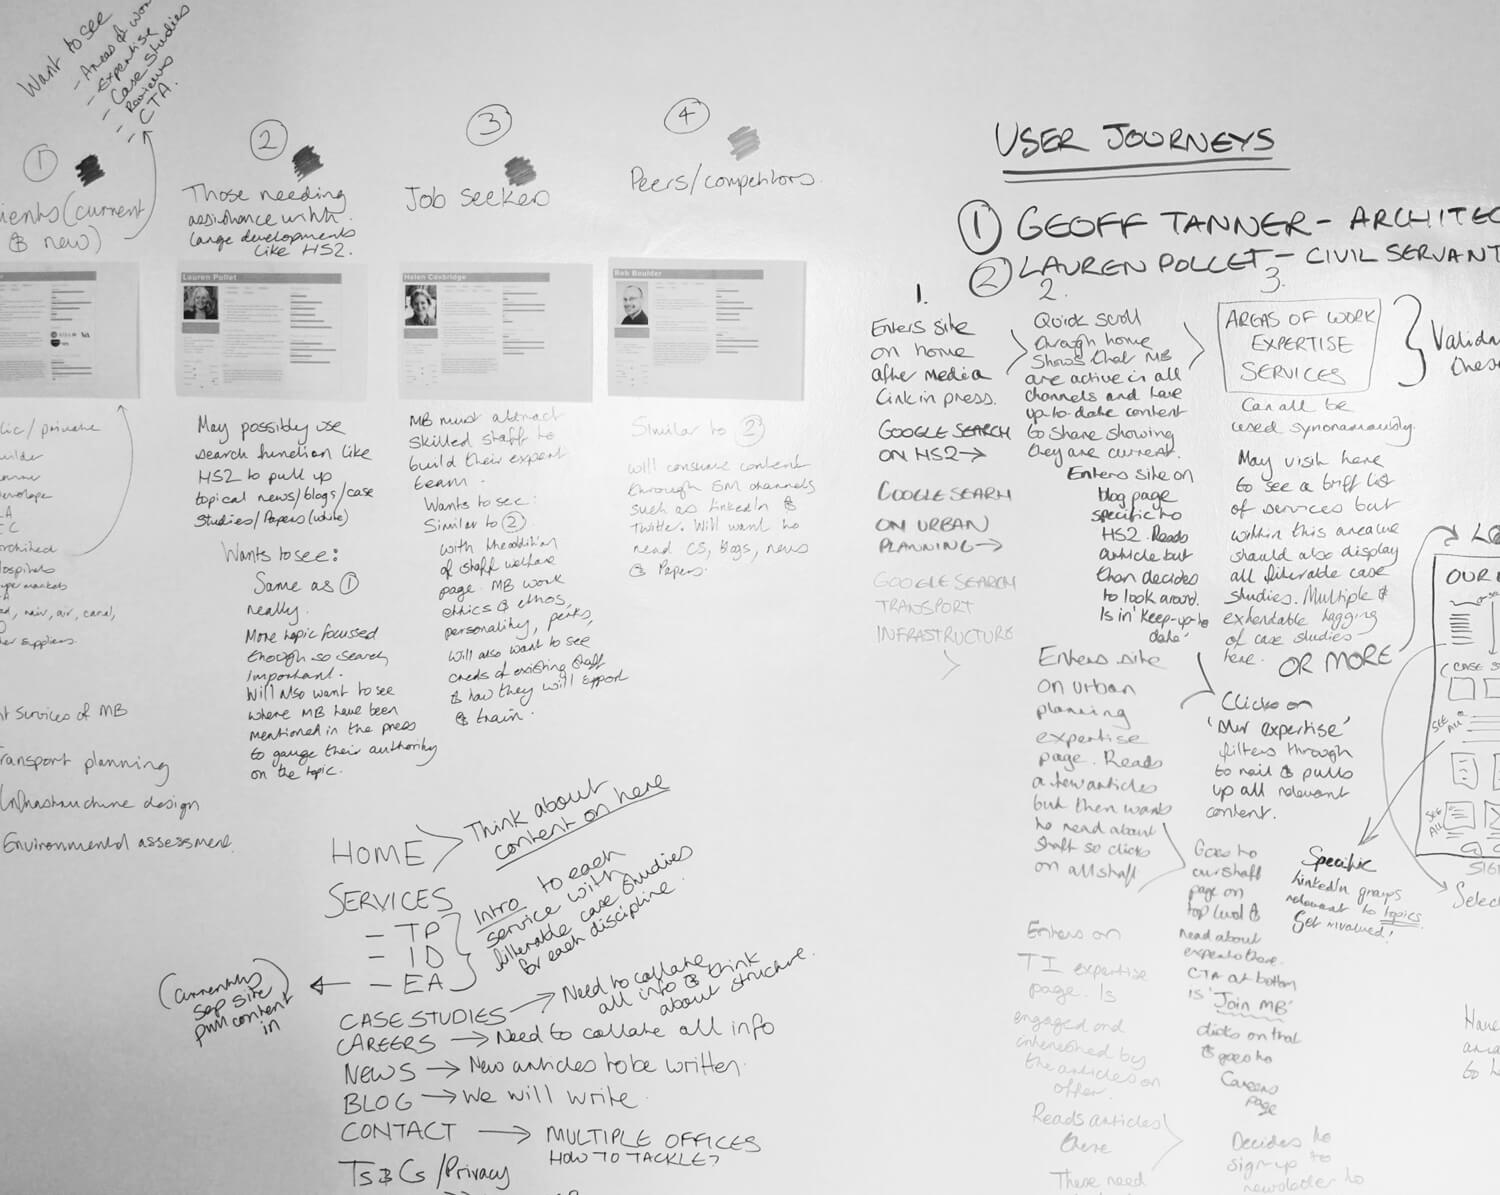 Want to see
- Areas of wor
- Expertise
- Case Studies
- Reviews
- CTA.
1
ients (current
& new)
2
Those needing
assistance with
large developments
like HS2.
3
Job seekers
4
Peers/competitors.
Lauren Pollet
Helen Coxbridge
Bob Boulder
lic/private
uilder
velope
EC
architect
ospitals
permarkets
, nair, air, canal,
her suppliers.
nt services of MB
ransport planning
Infrastructure design
Environmental assessment.
May possibly use
search function like
HS2 to pull up
topical news/blogs/case
studies/Papers (white)
Wants to see:
Same as 1
really.
More topic focused
though so search
important.
Will also want to see
where MB have been
mentioned in the press
to gauge their authority
on the topic.
MB must attract
skilled staff to
build their expert
team.
Wants to see:
Similar to 2
with the addition
of staff welfare
page. MB work
ethics & ethos,
personality, perks,
Will also want to see
creds of existing staff
& how they will support
& train.
Similar to 2
will consume content
through SM channels
such as LinkedIn &
Twitter. Will want to
read CS, blogs, news
& Papers.
HOME > Think about
content on here
SERVICES
- TP
- ID
- EA
Intro to each
service with
filterable case studies
for each discipline.
(currently
sep site
pull content
in
CASE STUDIES → Need to collate
all info & think
about structure.
CAREERS → Need to collate all info
NEWS → New articles to be written.
BLOG → We will write.
CONTACT → MULTIPLE OFFICES
HOW TO TACKLE?
Ts & Cs /Privacy
USER JOURNEYS
1 GEOFF TANNER - ARCHITEC
2 LAUREN POLLET - CIVIL SERVANT
1.
Enters site
on home
after media
link in press.
GOOGLE SEARCH
ON HS2 →
GOOGLE SEARCH
ON URBAN
PLANNING →
GOOGLE SEARCH
TRANSPORT
INFRASTRUCTURE
2.
Quick scroll
through home
shows that MB
are active in all
channels and have
up-to-date content
to share showing
they are current.
Enters site on
blog page
specific to
HS2. Reads
article but
then decides
to look around.
Is in 'keep-up-to
date'
Enters site
on urban
planning
expertise
page. Reads
a few articles
but then wants
to read about
staff so clicks
on all staff
Enters on
TI expertise
page. Is
engaged and
interested by
the articles on
offer.
Reads articles
there
These need
3.
AREAS OF WORK
EXPERTISE
SERVICES
Valida
these
Can all be
used synonamously.
May visit here
to see a brief list
of services but
within this area we
should also display
all filterable case
studies. Multiple &
extendable tagging
of case studies
here.
OR MORE
Clicks on
'Our expertise'
filters through
to rail & pulls
up all relevant
content.
Goes to
our staff
page on
top level &
read about
experts there.
CTA at bottom
is 'Join MB'
clicks on that
& goes to
Careers
page
Decides to
sign-up to
newsletter to
Specific
LinkedIn groups
relevant to topics
Get involved!
LO
OUR
CASE S
SEE
ALL
SEE
ALL
SIG
Select
Have
to h